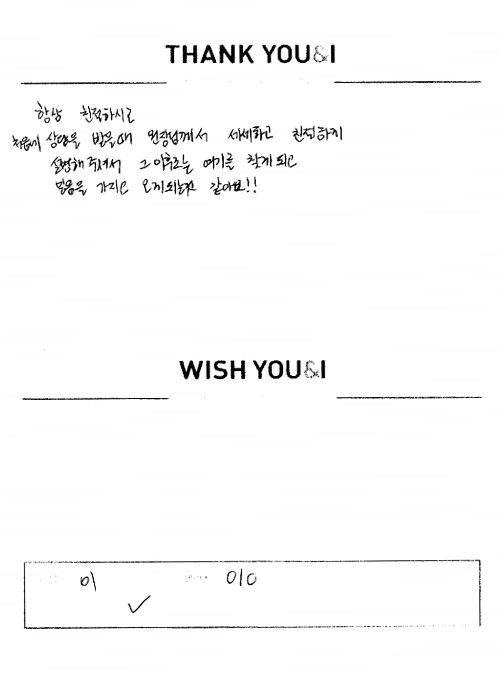 THANK YOU&I
항상 친절하시고
처음에 상담을 받을때 원장님께서 세세하고 친절하게
설명해주셔서 그 이후로는 여기를 찾게 되고
믿음을 가지고 오게되는것 같아요!!
WISH YOU&I
이 010